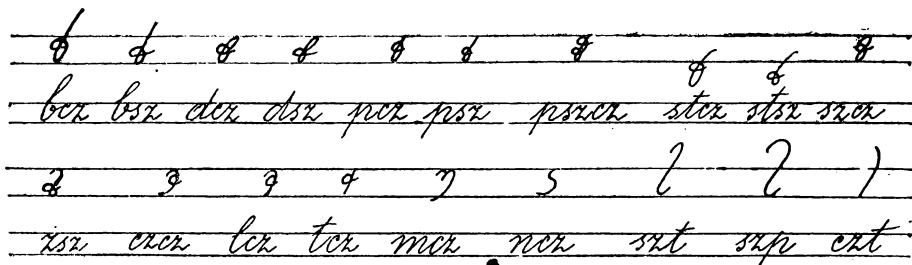 bcz bsz dcz dsz pcz psz pszcz stcz stsz szcz
zsz czcz lcz tcz mcz ncz szt szp czt